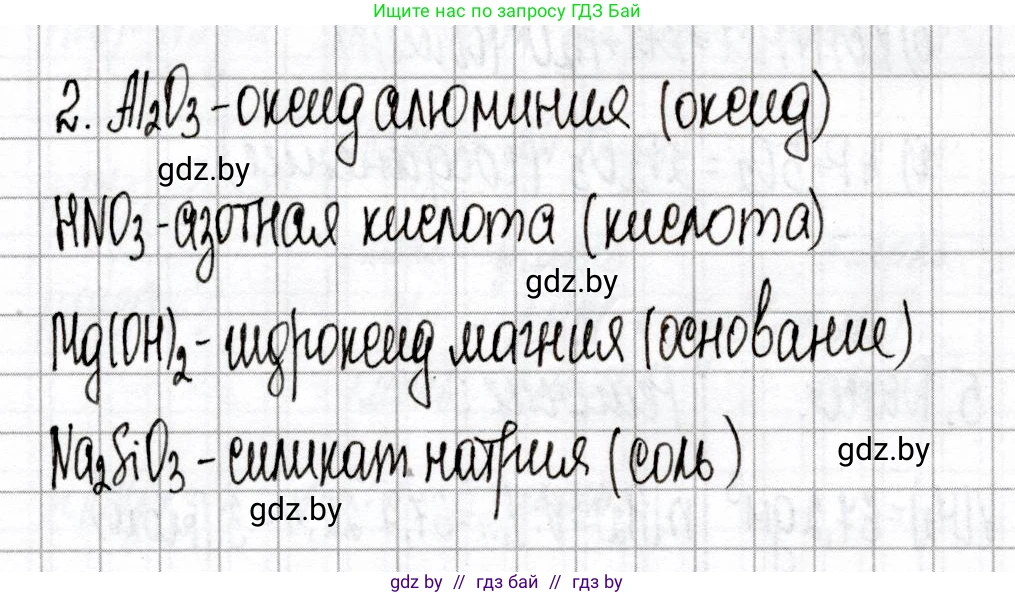 Ищите нас по запросу ГДЗ Бай
2. Al2O3 - оксид алюминия (оксид)
gdz.by
HNO3 - азотная кислота (кислота)
gdz.by
Mg(OH)2 - гидроксид магния (основание)
Na2SiO3 - силикат натрия (соль)
gdz.by
gdz.by
gdz by // гдз бай // gdz by